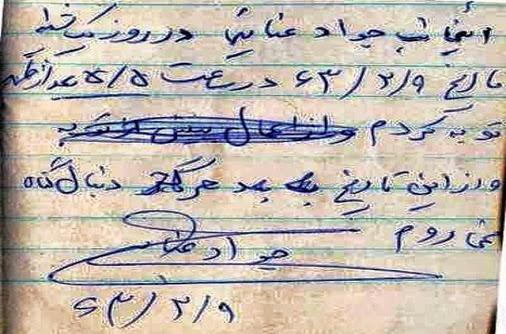 اینجانب جواد عنایتی در روز یکشنبه
تاریخ ۶۳/۲/۹ در ساعت ۵/۵ بعدازظهر
توبه کردم
و از این تاریخ به بعد هرگز دنبال گناه
نمی روم
جواد عنایتی
۶۳/۲/۹